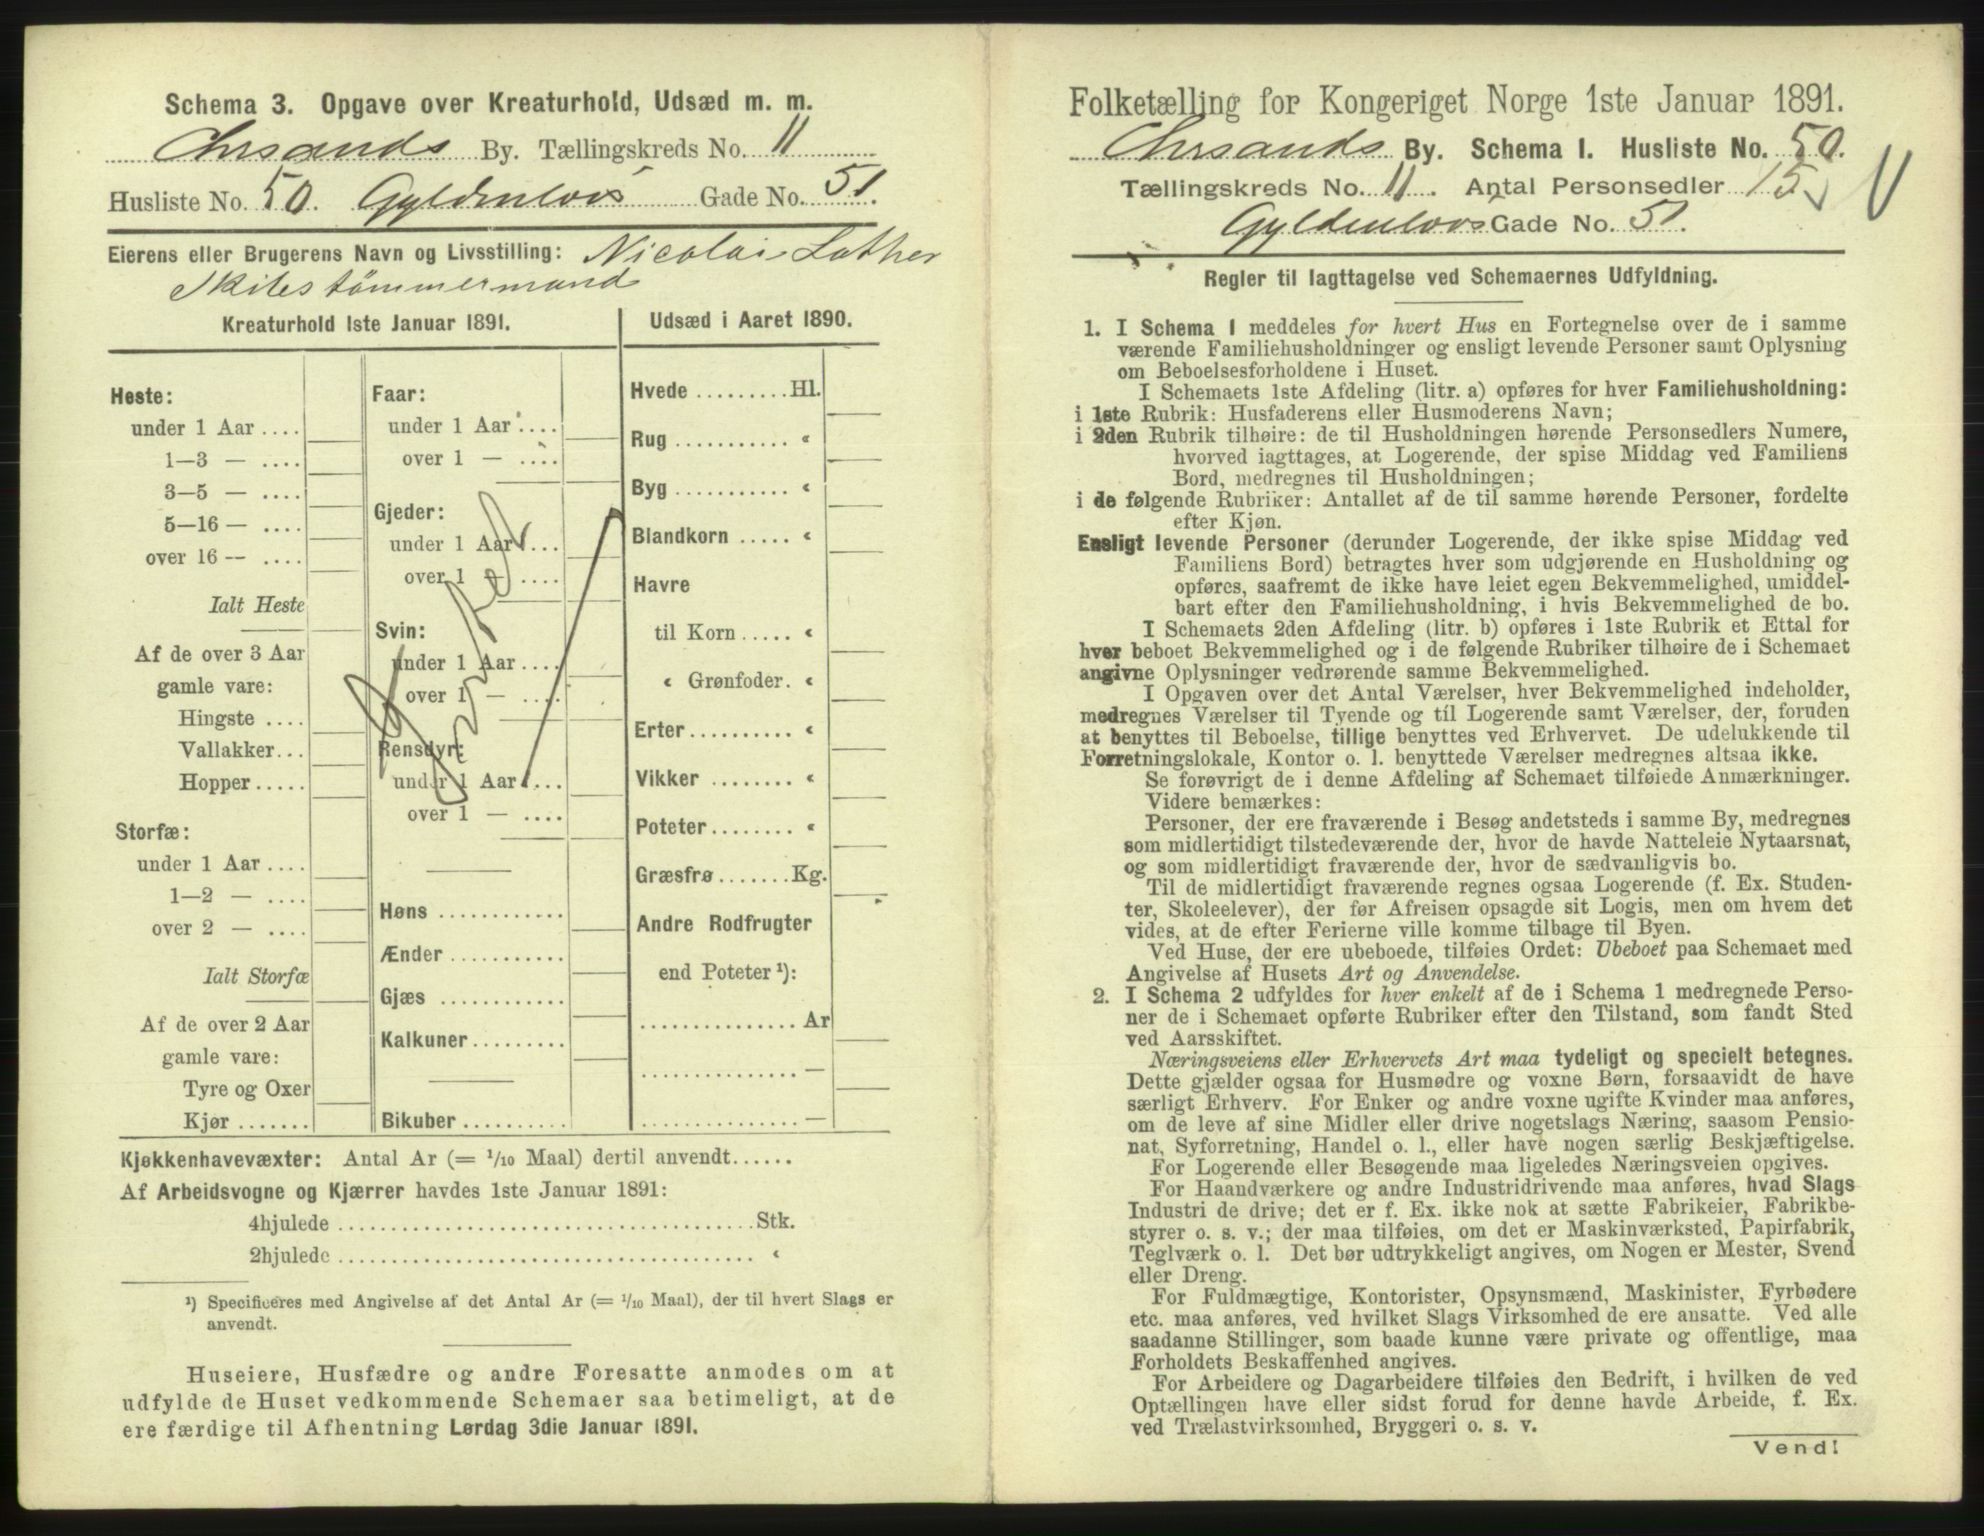 Schema 3. Opgave over Kreaturhold, Udsæd m. m.
Chrsands By. Tællingskreds No. 11
Husliste No. 50. Gyldenlovs Gade No. 51.
Eierens eller Brugerens Navn og Livsstilling: Nicolai Lother
Skibstømmermand
Kreaturhold 1ste Januar 1891.
Heste:
under 1 Aar ....
1—3 — ....
3—5 — ....
5—16 — ....
over 16 — ....
Ialt Heste
Af de over 3 Aar
gamle vare:
Hingste ....
Vallakker...
Hopper.....
Storfæ:
under 1 Aar ....
1—2 — ....
over 2 — ....
Ialt Storfæ
Af de over 2 Aar
gamle vare:
Tyre og Oxer
Kjør .......
Faar:
under 1 Aar ....
over 1 — ....
Gjeder:
under 1 Aar ....
over 1 — ....
Svin:
under 1 Aar ....
over 1 — ....
Rensdyr:
under 1 Aar ....
over 1 — ....
Høns ............
Ænder ...........
Gjæs ............
Kalkuner .........
Bikuber ..........
Udsæd i Aaret 1890.
Hvede ......... Hl.
Rug ........... «
Byg ........... «
Blandkorn ..... «
Havre
til Korn ..... «
« Grønfoder. «
Erter .......... «
Vikker ........ «
Poteter ........ «
Græsfrø ....... Kg.
Andre Rodfrugter
end Poteter ¹):
............... Ar
............... —
............... —
Kjøkkenhavevæxter: Antal Ar (= 1/10 Maal) dertil anvendt......
Af Arbeidsvogne og Kjærrer havdes 1ste Januar 1891:
4hjulede ........................................ Stk.
2hjulede ........................................ «
¹) Specificeres med Angivelse af det Antal Ar (= 1/10 Maal), der til hvert Slags er
anvendt.
Huseiere, Husfædre og andre Foresatte anmodes om at
udfylde de Huset vedkommende Schemaer saa betimeligt, at de
ere færdige til Afhentning Lørdag 3die Januar 1891.
Folketælling for Kongeriget Norge 1ste Januar 1891.
Chrsands By. Schema I. Husliste No. 50.
Tællingskreds No. 11. Antal Personsedler 15
Gyldenlovs Gade No. 51.
Regler til Iagttagelse ved Schemaernes Udfyldning.
1. I Schema 1 meddeles for hvert Hus en Fortegnelse over de i samme
værende Familiehusholdninger og ensligt levende Personer samt Oplysning
om Beboelsesforholdene i Huset.
I Schemaets 1ste Afdeling (litr. a) opføres for hver Familiehusholdning:
i 1ste Rubrik: Husfaderens eller Husmoderens Navn;
i 2den Rubrik tilhøire: de til Husholdningen hørende Personsedlers Numere,
hvorved iagttages, at Logerende, der spise Middag ved Familiens
Bord, medregnes til Husholdningen;
i de følgende Rubriker: Antallet af de til samme hørende Personer, fordelte
efter Kjøn.
Ensligt levende Personer (derunder Logerende, der ikke spise Middag ved
Familiens Bord) betragtes hver som udgjørende en Husholdning og
opføres, saafremt de ikke have leiet egen Bekvemmelighed, umiddel-
bart efter den Familiehusholdning, i hvis Bekvemmelighed de bo.
I Schemaets 2den Afdeling (litr. b) opføres i 1ste Rubrik et Ettal for
hver beboet Bekvemmelighed og i de følgende Rubriker tilhøire de i Schemaet
angivne Oplysninger vedrørende samme Bekvemmelighed.
I Opgaven over det Antal Værelser, hver Bekvemmelighed indeholder,
medregnes Værelser til Tyende og til Logerende samt Værelser, der, foruden
at benyttes til Beboelse, tillige benyttes ved Erhvervet. De udelukkende til
Forretningslokale, Kontor o. l. benyttede Værelser medregnes altsaa ikke.
Se forøvrigt de i denne Afdeling af Schemaet tilføiede Anmærkninger.
Videre bemærkes:
Personer, der ere fraværende i Besøg andetsteds i samme By, medregnes
som midlertidigt tilstedeværende der, hvor de havde Natteleie Nytaarsnat,
og som midlertidigt fraværende der, hvor de sædvanligvis bo.
Til de midlertidigt fraværende regnes ogsaa Logerende (f. Ex. Studen-
ter, Skoleelever), der før Afreisen opsagde sit Logis, men om hvem det
vides, at de efter Ferierne ville komme tilbage til Byen.
Ved Huse, der ere ubeboede, tilføies Ordet: Ubeboet paa Schemaet med
Angivelse af Husets Art og Anvendelse.
2. I Schema 2 udfyldes for hver enkelt af de i Schema 1 medregnede Perso-
ner de i Schemaet opførte Rubriker efter den Tilstand, som fandt Sted
ved Aarsskiftet.
Næringsveiens eller Erhvervets Art maa tydeligt og specielt betegnes.
Dette gjælder ogsaa for Husmødre og voxne Børn, forsaavidt de have
særligt Erhverv. For Enker og andre voxne ugifte Kvinder maa anføres,
om de leve af sine Midler eller drive nogetslags Næring, saasom Pensio-
nat, Syforretning, Handel o. l., eller have nogen særlig Beskjæftigelse.
For Logerende eller Besøgende maa ligeledes Næringsveien opgives.
For Haandværkere og andre Industridrivende maa anføres, hvad Slags
Industri de drive; det er f. Ex. ikke nok at sætte Fabrikeier, Fabrikbe-
styrer o. s. v.; der maa tilføies, om det er Maskinværksted, Papirfabrik,
Teglværk o. l. Det bør udtrykkeligt angives, om Nogen er Mester, Svend
eller Dreng.
For Fuldmægtige, Kontorister, Opsynsmænd, Maskinister, Fyrbødere
etc. maa anføres, ved hvilket Slags Virksomhed de ere ansatte. Ved alle
saadanne Stillinger, som baade kunne være private og offentlige, maa
Forholdets Beskaffenhed angives.
For Arbeidere og Dagarbeidere tilføies den Bedrift, i hvilken de ved
Optællingen have eller sidst forud for denne havde Arbeide, f. Ex.
ved Trælastvirksomhed, Bryggeri o. s. v.
Vend!